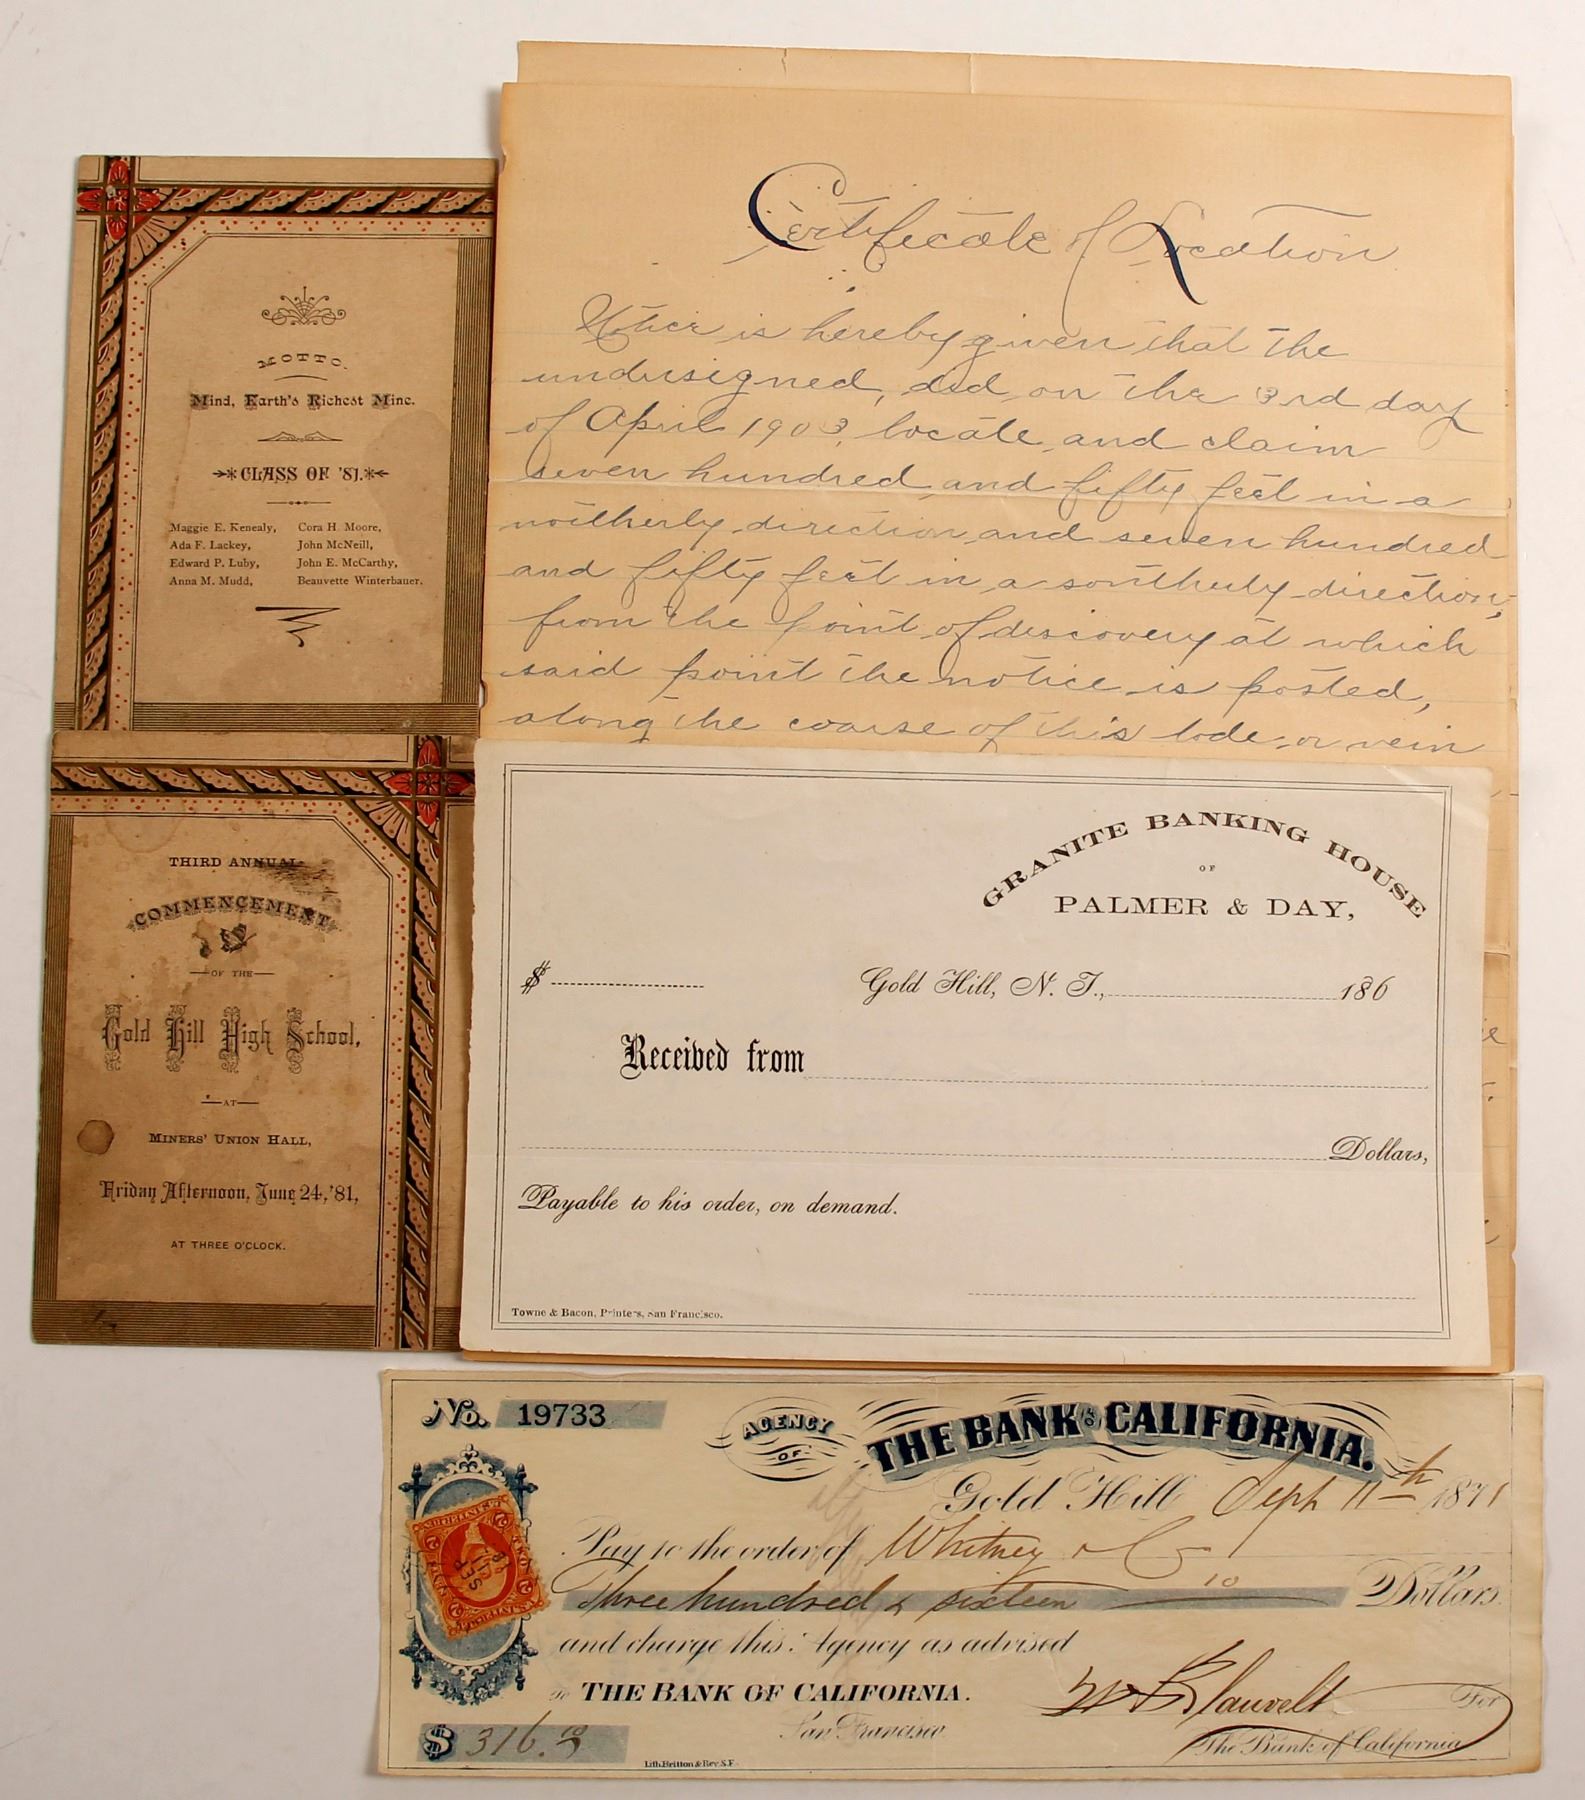 MOTTO.
Mind, Earth's Richest Mine.
CLASS OF '81.
Maggie E. Kenealy, Cora H. Moore,
Ada F. Lackey, John McNeill,
Edward P. Luby, John E. McCarthy,
Anna M. Mudd, Beauvette Winterbauer.
THIRD ANNUAL
COMMENCEMENT
OF THE
Gold Hill High School,
AT
MINERS' UNION HALL,
Friday Afternoon, June 24, '81,
AT THREE O'CLOCK.
Certificate of Location
Notice is hereby given that the
undersigned, did on the 3rd day
of April 1903, locate and claim
seven hundred and fifty feet in a
northerly direction and seven hundred
and fifty feet in a southerly direction,
from the point of discovery at which
said point the notice is posted,
along the coarse of this lode or vein
GRANITE BANKING HOUSE
OF
PALMER & DAY,
$ Gold Hill, N. T., 186
Received from
Dollars,
Payable to his order, on demand.
Towne & Bacon, Printers, San Francisco.
No. 19733 AGENCY OF THE BANK OF CALIFORNIA.
Gold Hill Sept 11th 1871
Pay to the order of Whitney & Co
Three hundred & sixteen 10 Dollars
and charge this Agency as advised
To THE BANK OF CALIFORNIA.
San Francisco
W Blauvelt For
The Bank of California
$ 316.10
Lith. Britton & Rey S.F.